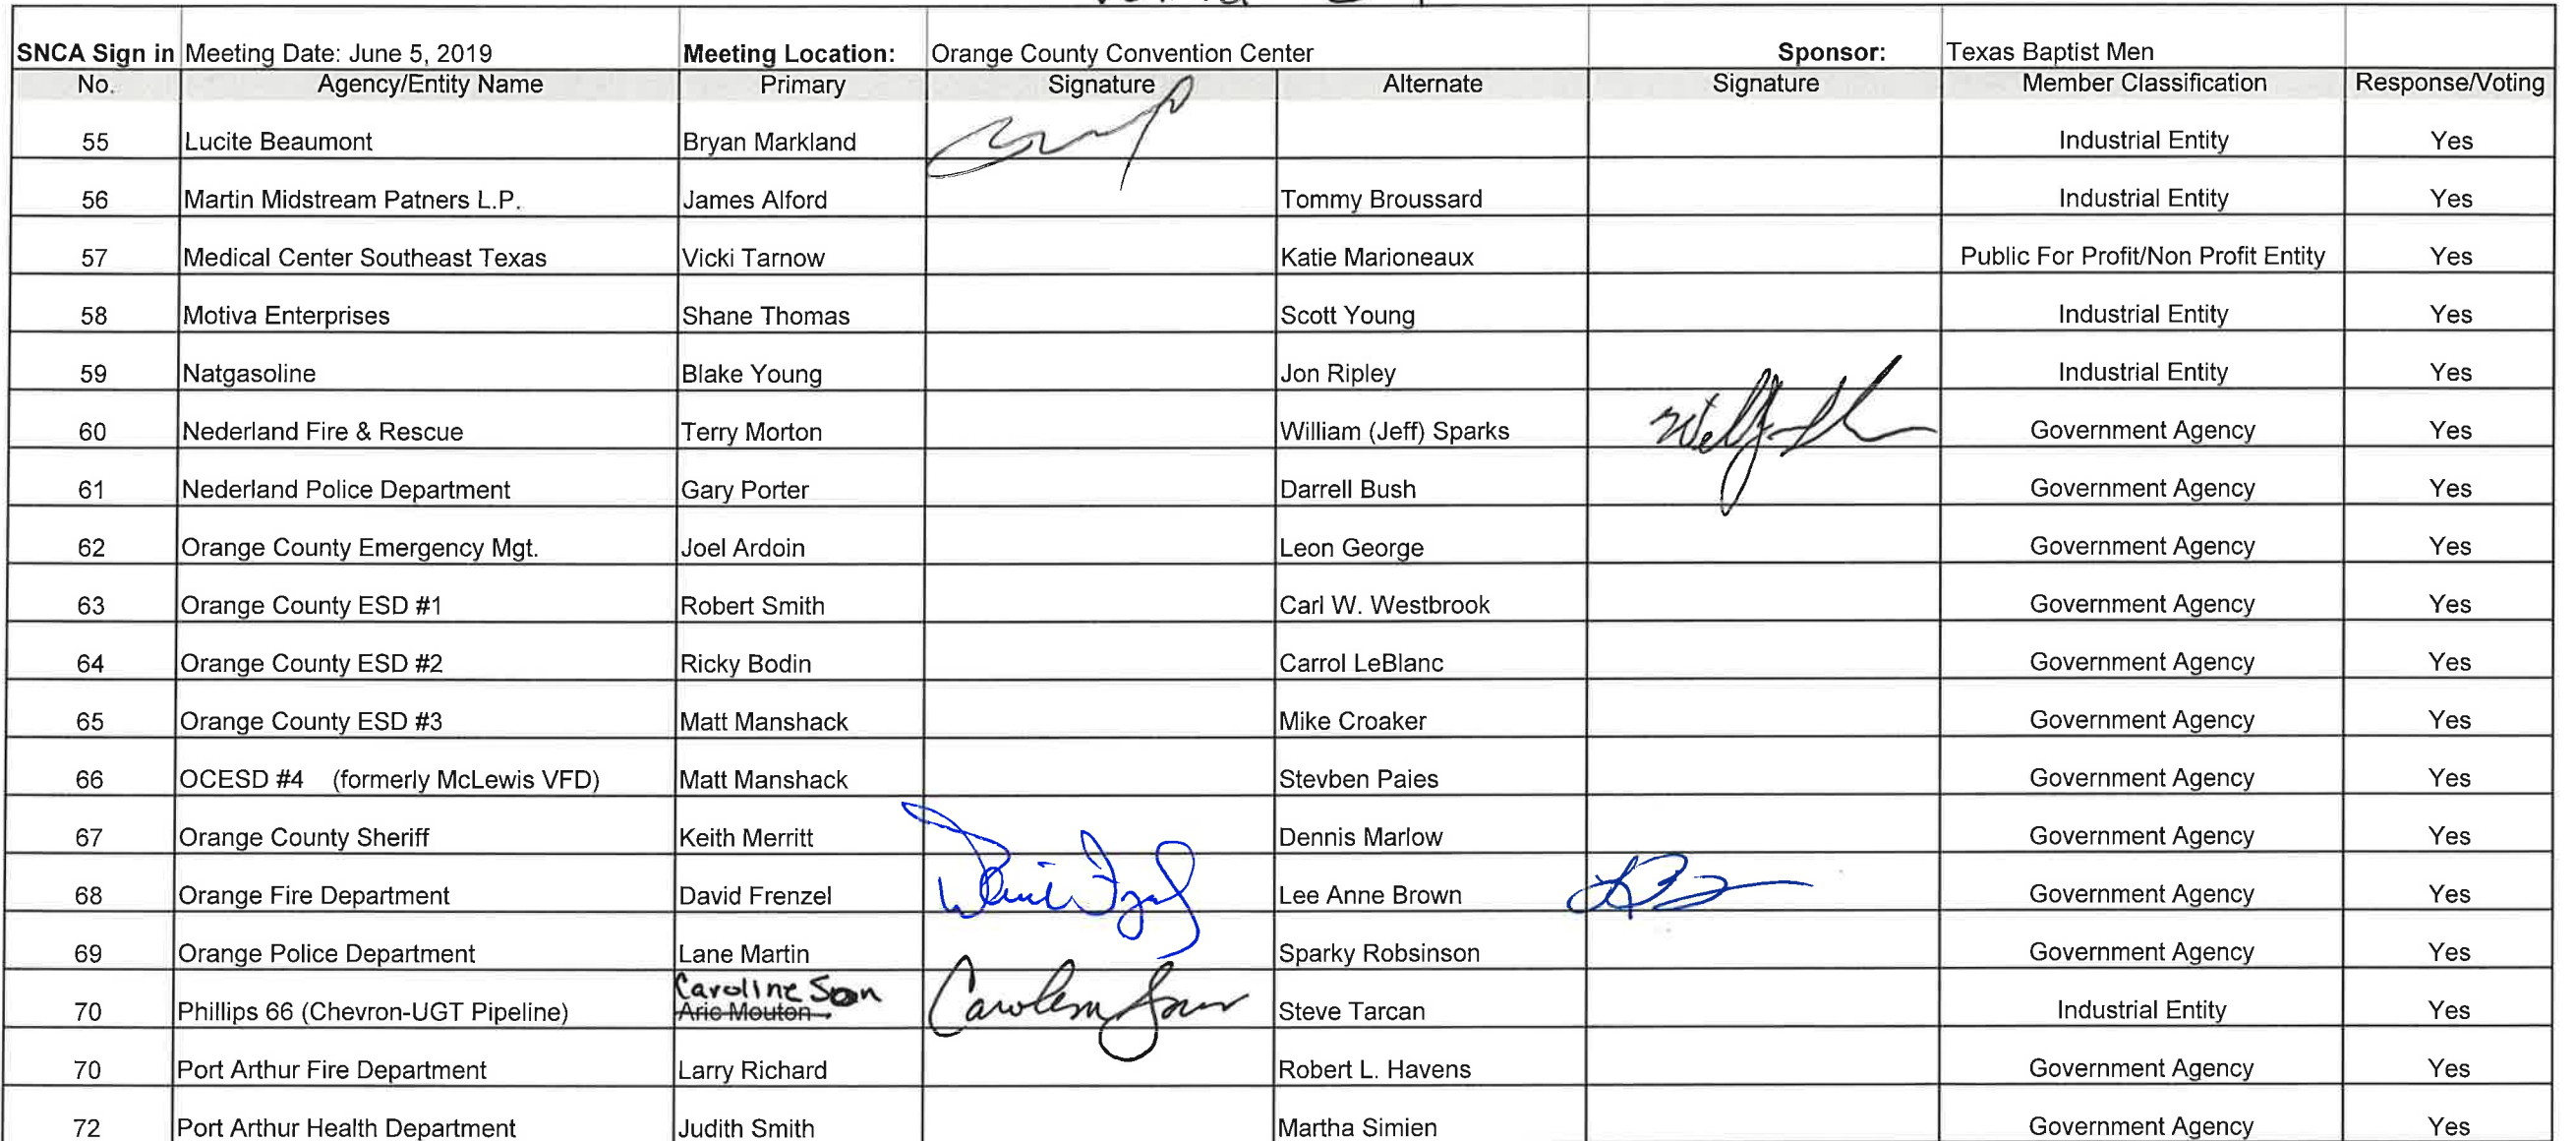 SNCA Sign in Meeting Date: June 5, 2019 Meeting Location: Orange County Convention Center Sponsor: Texas Baptist Men
No. Agency/Entity Name Primary Signature Alternate Signature Member Classification Response/Voting
55 Lucite Beaumont Bryan Markland Industrial Entity Yes
56 Martin Midstream Patners L.P. James Alford Tommy Broussard Industrial Entity Yes
57 Medical Center Southeast Texas Vicki Tarnow Katie Marioneaux Public For Profit/Non Profit Entity Yes
58 Motiva Enterprises Shane Thomas Scott Young Industrial Entity Yes
59 Natgasoline Blake Young Jon Ripley Industrial Entity Yes
60 Nederland Fire & Rescue Terry Morton William (Jeff) Sparks Government Agency Yes
61 Nederland Police Department Gary Porter Darrell Bush Government Agency Yes
62 Orange County Emergency Mgt. Joel Ardoin Leon George Government Agency Yes
63 Orange County ESD #1 Robert Smith Carl W. Westbrook Government Agency Yes
64 Orange County ESD #2 Ricky Bodin Carrol LeBlanc Government Agency Yes
65 Orange County ESD #3 Matt Manshack Mike Croaker Government Agency Yes
66 OCESD #4 (formerly McLewis VFD) Matt Manshack Stevben Paies Government Agency Yes
67 Orange County Sheriff Keith Merritt Dennis Marlow Government Agency Yes
68 Orange Fire Department David Frenzel Lee Anne Brown Government Agency Yes
69 Orange Police Department Lane Martin Sparky Robsinson Government Agency Yes
Caroline Son
70 Phillips 66 (Chevron-UGT Pipeline) Aric Mouton Steve Tarcan Industrial Entity Yes
70 Port Arthur Fire Department Larry Richard Robert L. Havens Government Agency Yes
72 Port Arthur Health Department Judith Smith Martha Simien Government Agency Yes